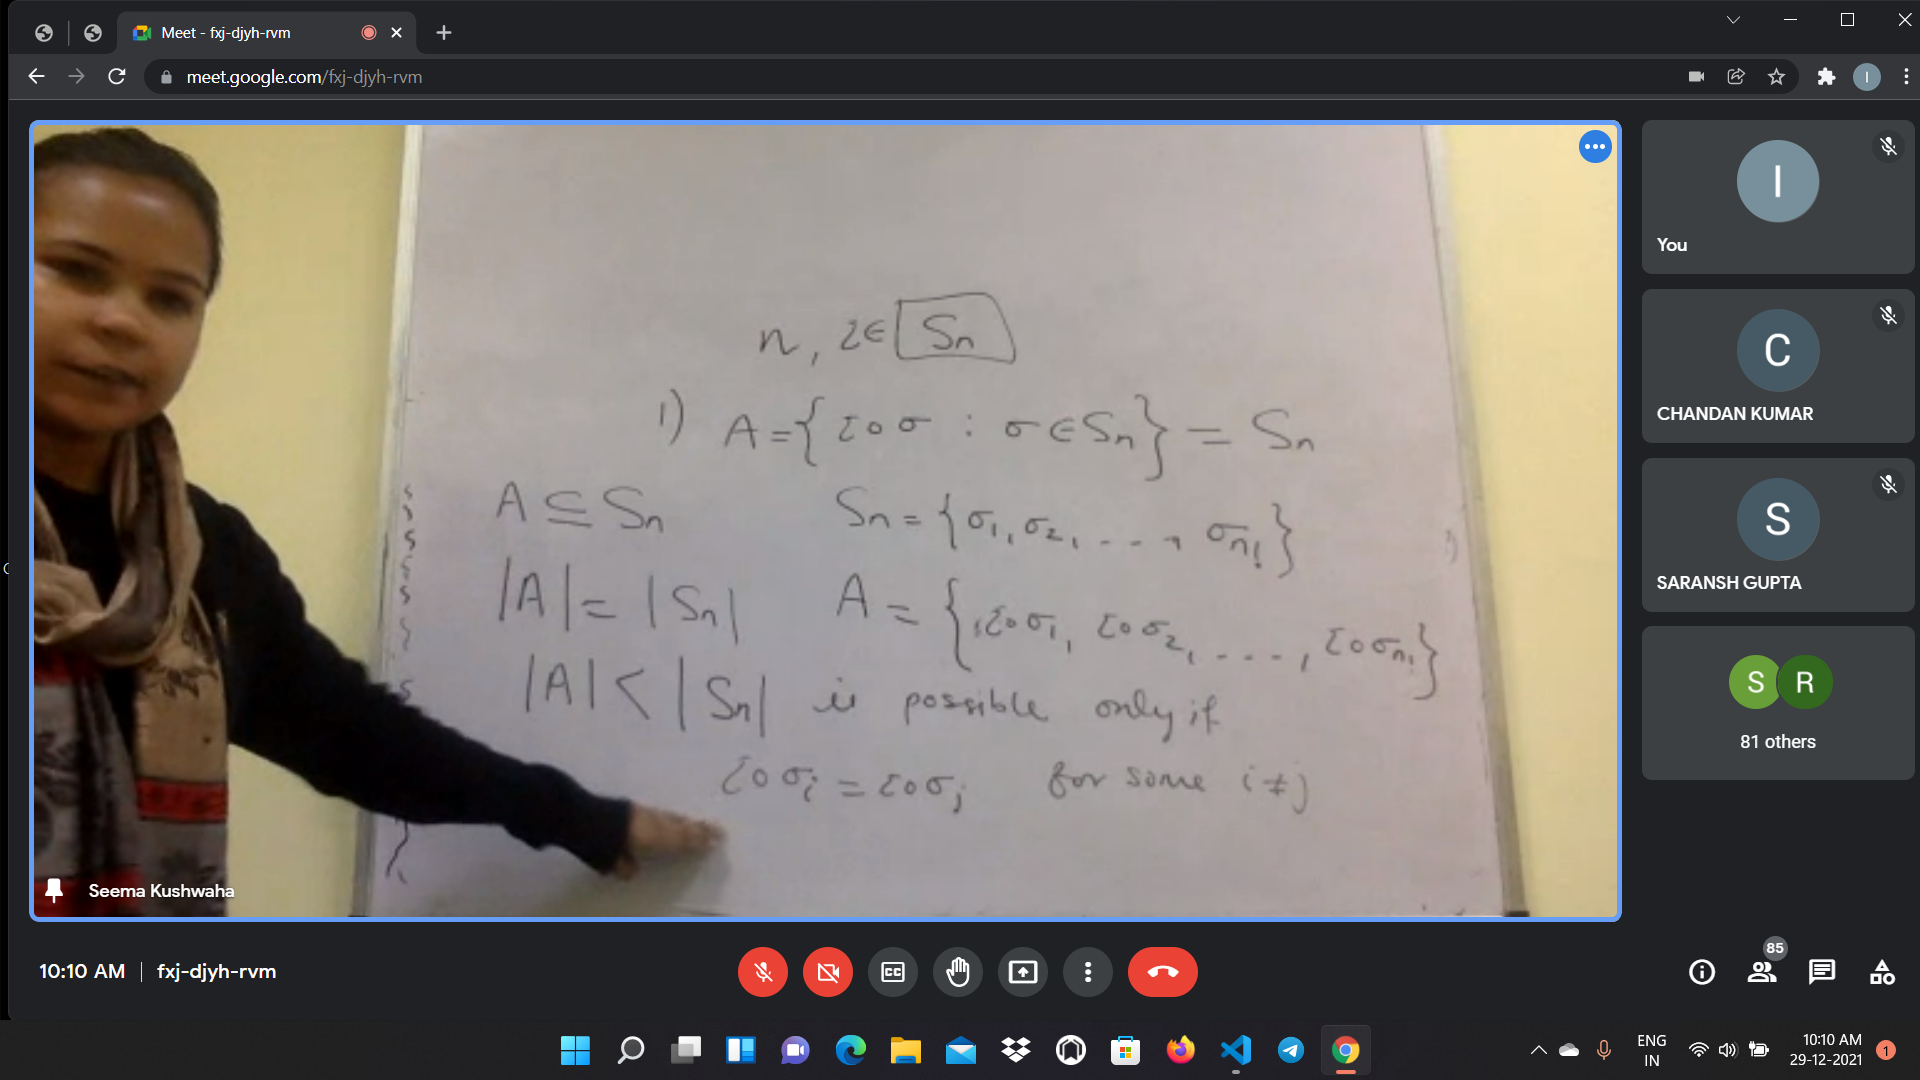 Meet - fxj-djyh-rvm
meet.google.com/fxj-djyh-rvm
I
n, τ∈ Sn
1) A={τoσ : σ∈Sn} = Sn
A ⊆ Sn
Sn = {σ1, σ2, ..., σn!}
|A| = |Sn|
A = {τoσ1, τoσ2, ...., τoσn!}
|A| < |Sn| is possible only if
τoσi = τoσj for some i≠j
Seema Kushwaha
I
You
C
CHANDAN KUMAR
S
SARANSH GUPTA
S R
81 others
10:10 AM | fxj-djyh-rvm
CC
85
ENG
IN
10:10 AM
29-12-2021
1